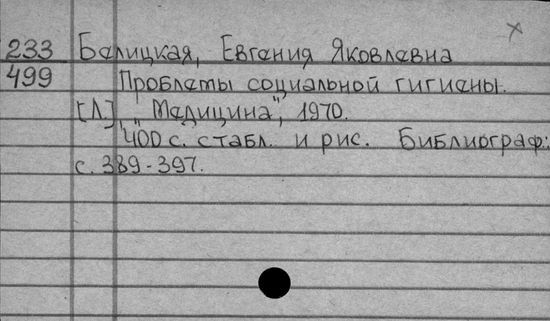 х
233 Балицкая, Евгения Яковлевна
499 Проблемы социальной гигиены.
[Л], "Медицина", 1970.
400 с. с табл. и рис. Библиограф:
с. 389-397.